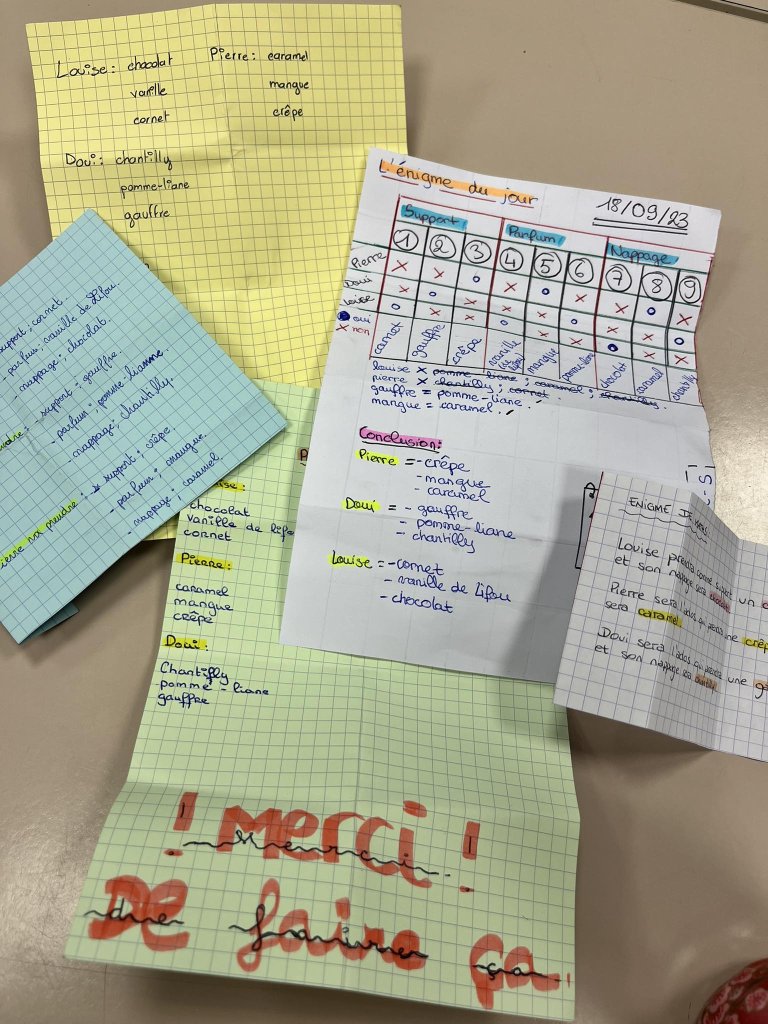 Louise : chocolat
vanille
cornet
Pierre : caramel
mangue
crêpe
Doui : chantilly
pomme-liane
gauffre
support ; cornet.
- parfum ; vanille de Lifou.
- nappage ; chocolat.
- support ; gauffre.
- parfum ; pomme lianne.
- nappage ; chantally.
va prendre : - support ; crêpe.
- parfum ; mangue.
- nappage ; caramel
L'énigme du jour
18/09/23
Support Parfum Nappage
1 2 3 4 5 6 7 8 9
Pierre
Doui
Louise
oui
X non
cornet gauffre crêpe vanille de Lifou mangue pomme-liane chocolat caramel chantilly
louise X pomme-liane ; caramel ; chantilly.
pierre X chantilly ; cornet
gauffre = pomme-liane.
mangue = caramel.
Conclusion :
Pierre = - crêpe
- mangue
- caramel
Doui = - gauffre
- pomme-liane
- chantilly
Louise = - cornet
- vanille de Lifou
- chocolat
chocolat
vanille de Lifo
cornet
Pierre :
caramel
mangue
crêpe
Doui :
Chantilly
pomme - liane
gauffre
! Merci !
De faire ça
ENIGME
Louise prend comme support un
et son nappage sera
Pierre sera l'ados qui prend une crêp
sera caramel
Doui sera l'ados qui prendra une ga
et son nappage sera